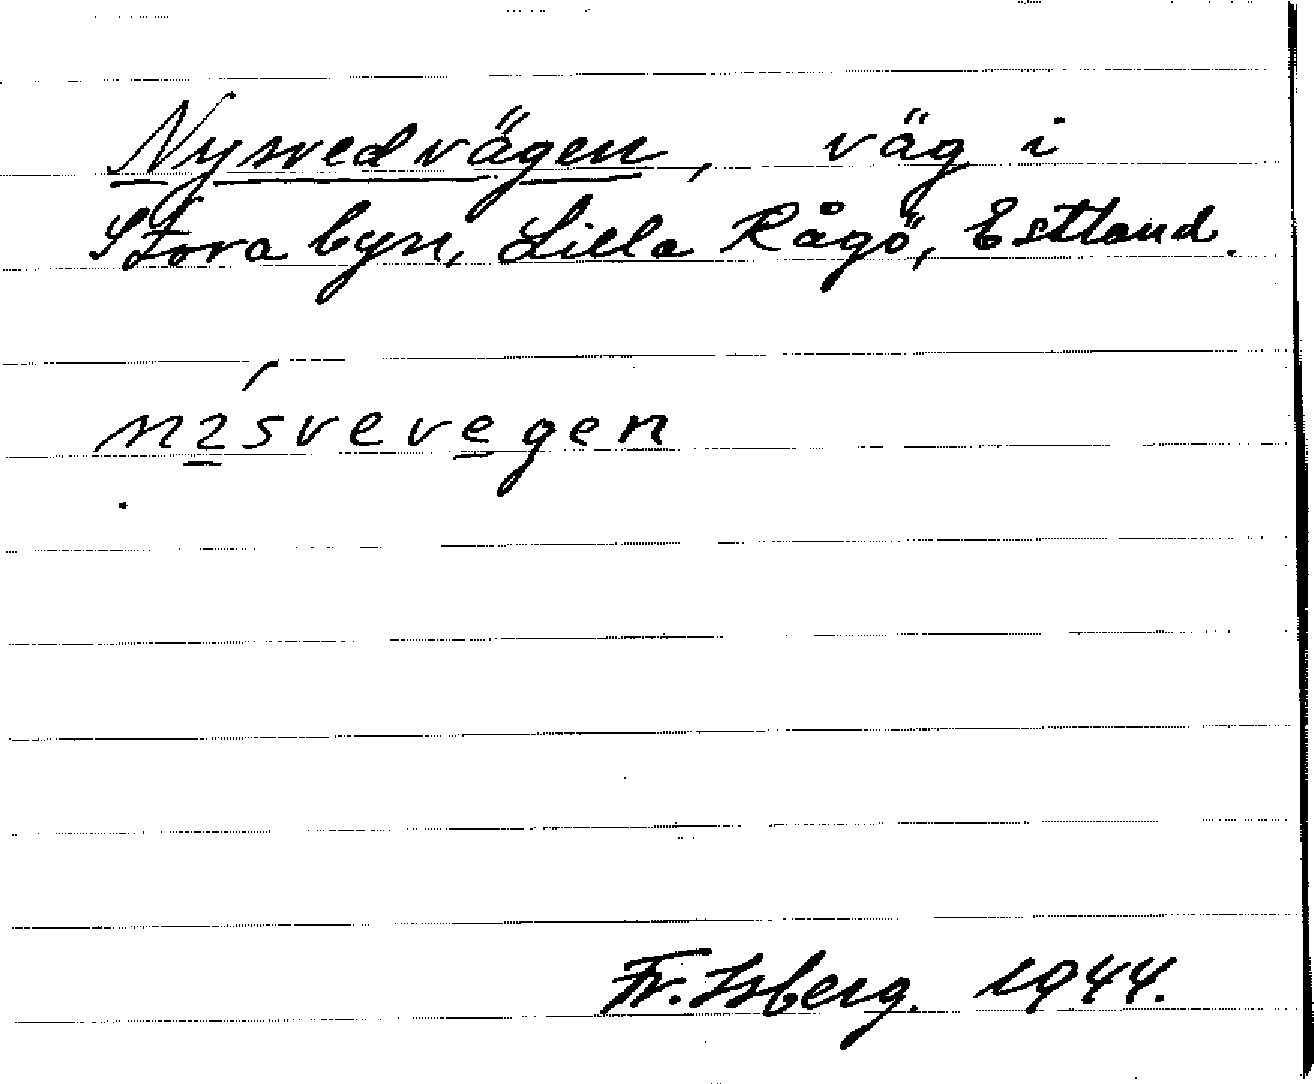 Nysvedvägen, väg i
Stora byn, Lilla Rågö, Estland.
nı̱́sveve̱gen
Fr. Isberg. 1944.